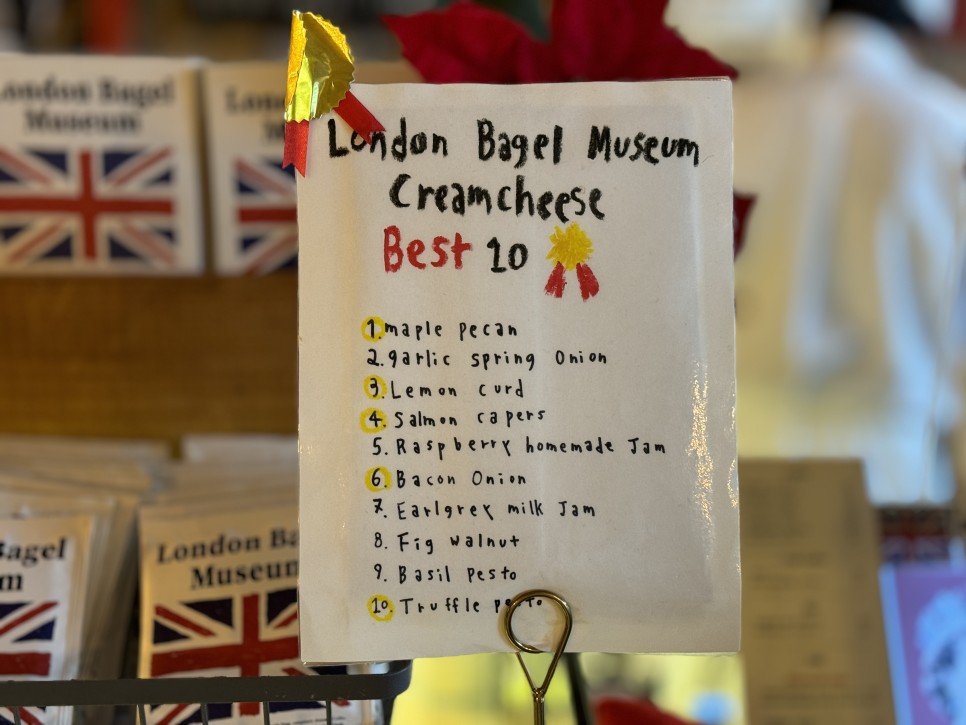 London Bagel
Museum
London Bagel Museum
Creamcheese
Best 10
1. maple pecan
2. garlic spring Onion
3. Lemon curd
4. Salmon capers
5. Raspberry homemade Jam
6. Bacon Onion
7. Earlgrey milk Jam
8. Fig walnut
9. Basil Pesto
10. Truffle pesto
Bagel
London Ba
Museum